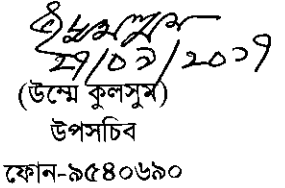 ২৭/০৯/২০১৭
(উম্মে কুলসুম)
উপসচিব
ফোন-৯৫৪০৬৯০